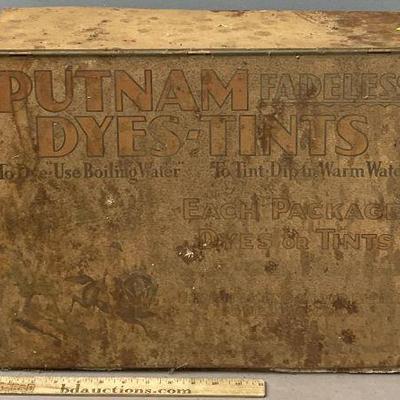 PUTNAM FADELESS
DYES-TINTS
To Dye-"Use Boiling Water" To Tint-Dip in Warm Wate
EACH PACKAGE
DYES OR TINTS
bdauctions.com